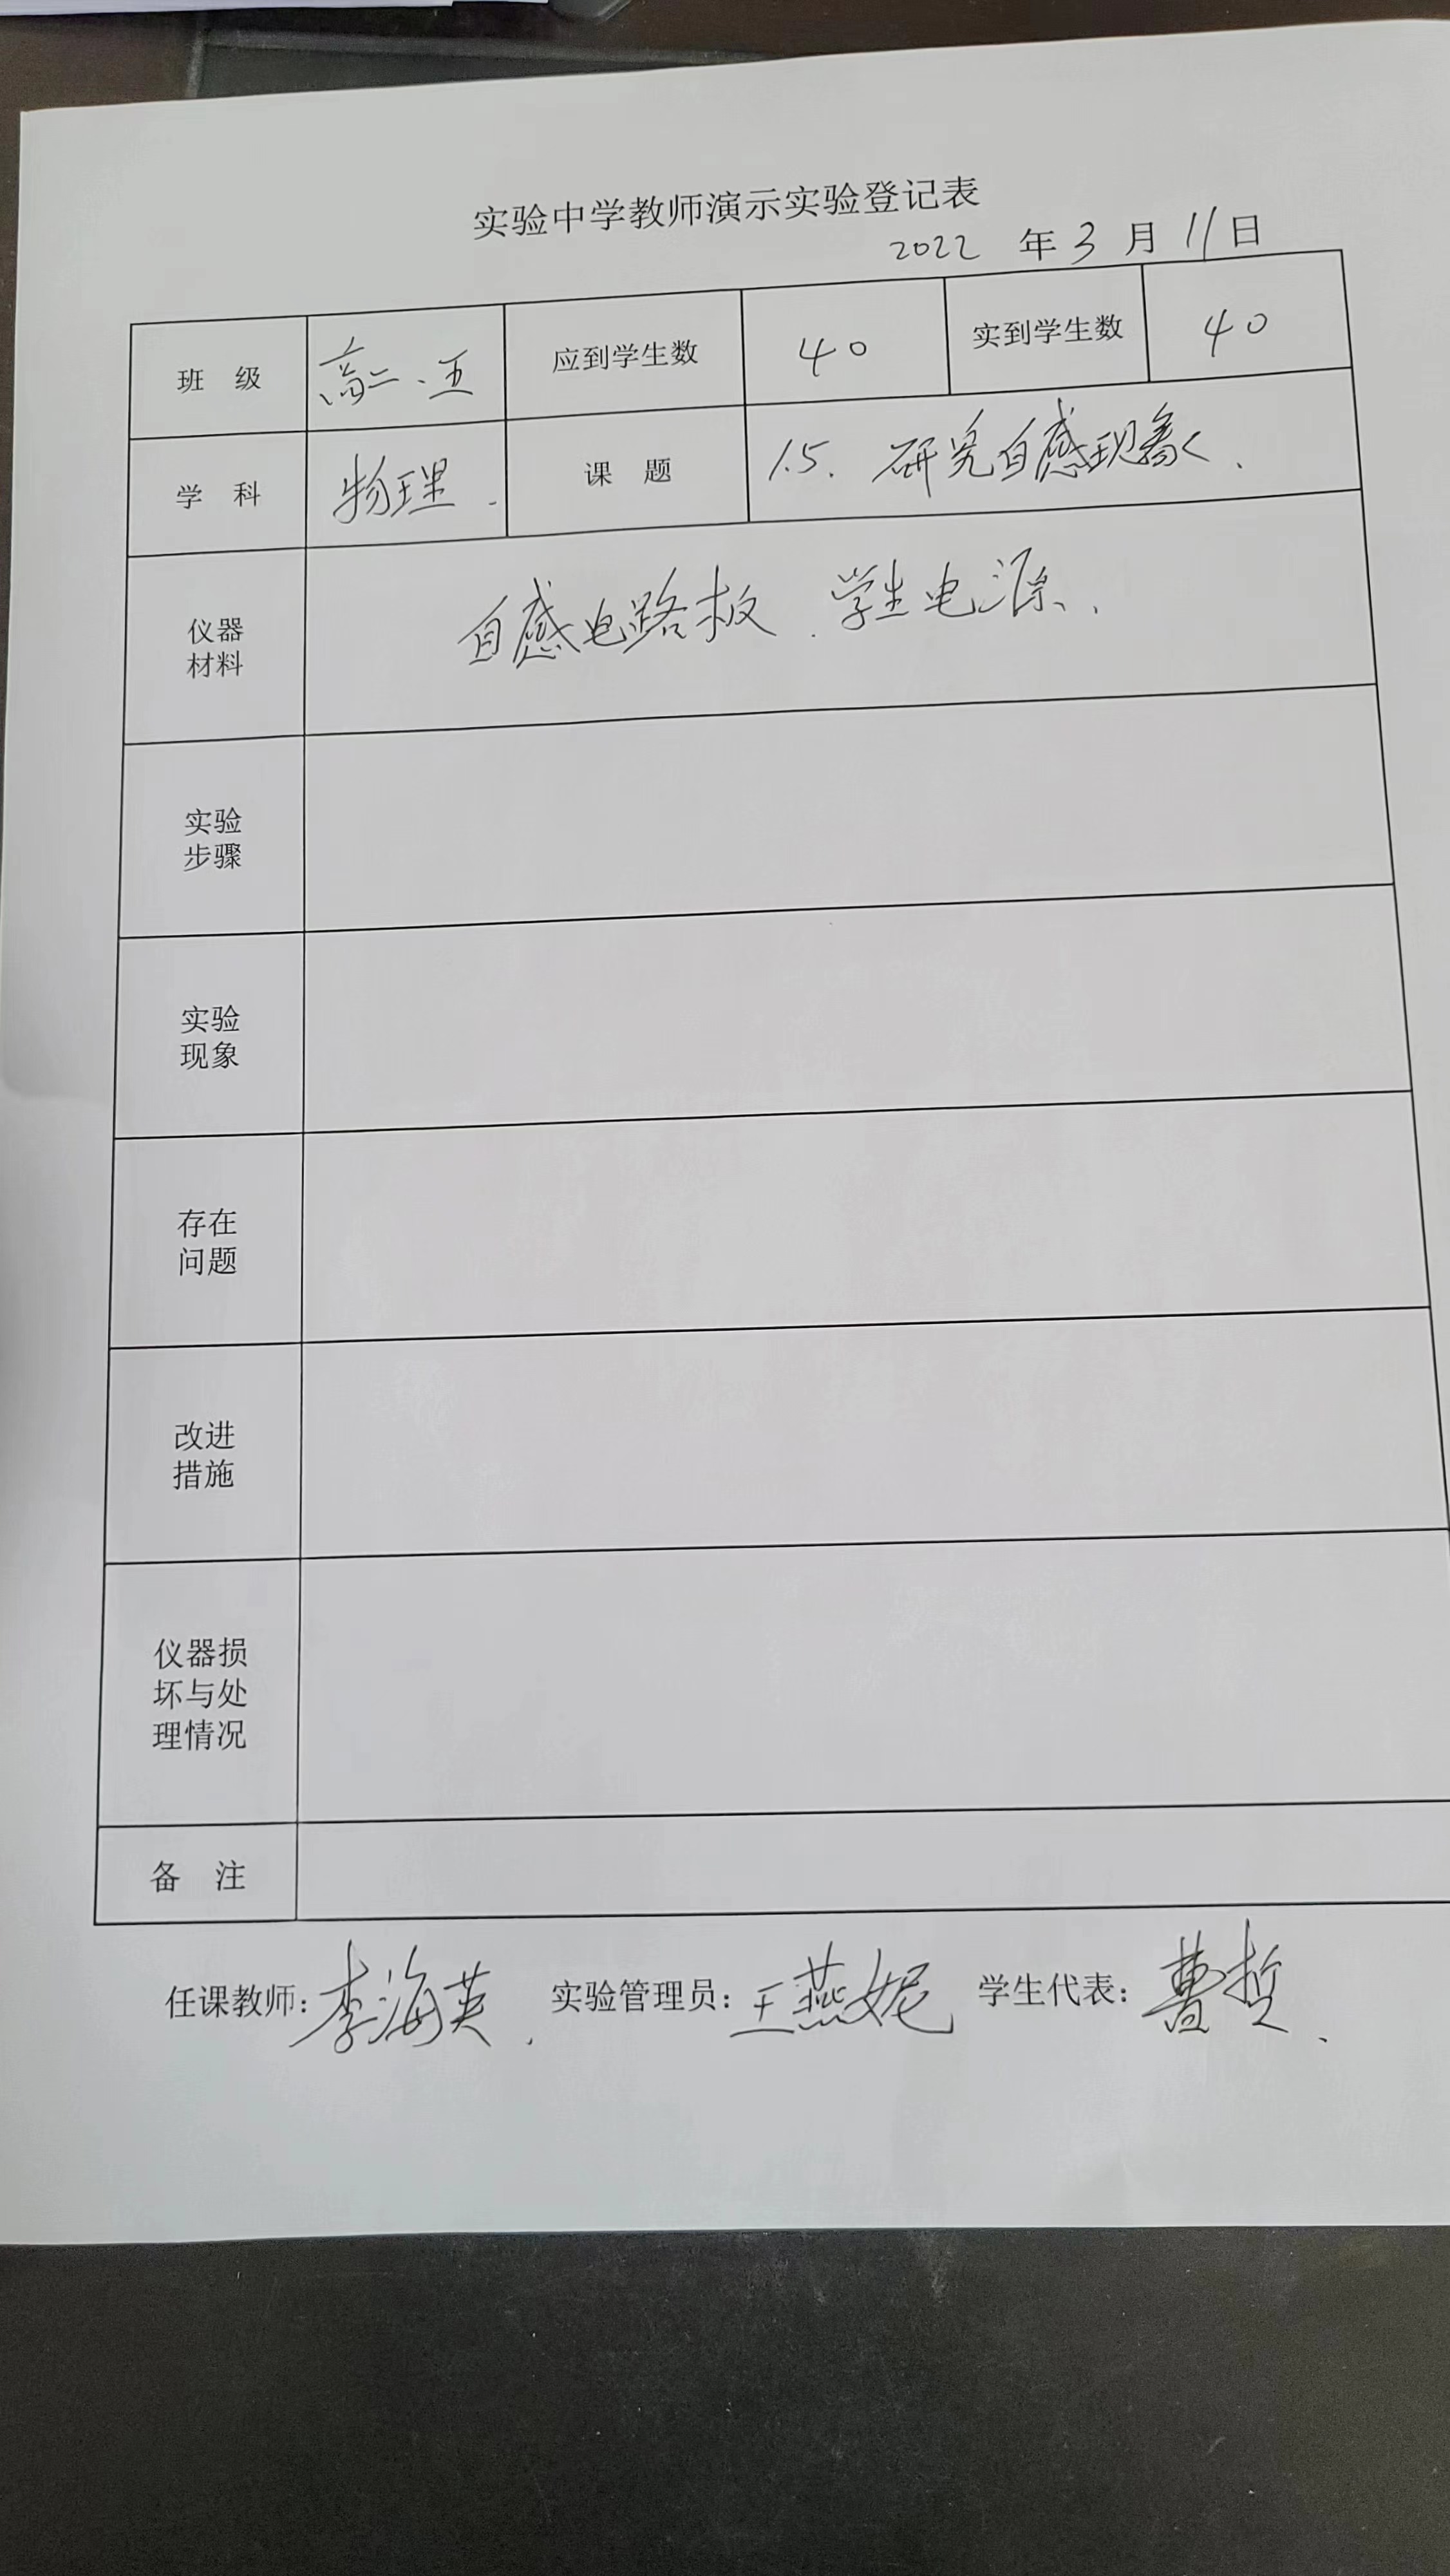 实验中学教师演示实验登记表
2022 年 3 月 11 日
班 级 高二、五 应到学生数 40 实到学生数 40
学 科 物理. 课 题 1.5. 研究自感现象.
仪器
材料
自感电路板.学生电源.
实验
步骤
实验
现象
存在
问题
改进
措施
仪器损
坏与处
理情况
备 注
任课教师:李海英. 实验管理员:王燕妮 学生代表:曹哲.